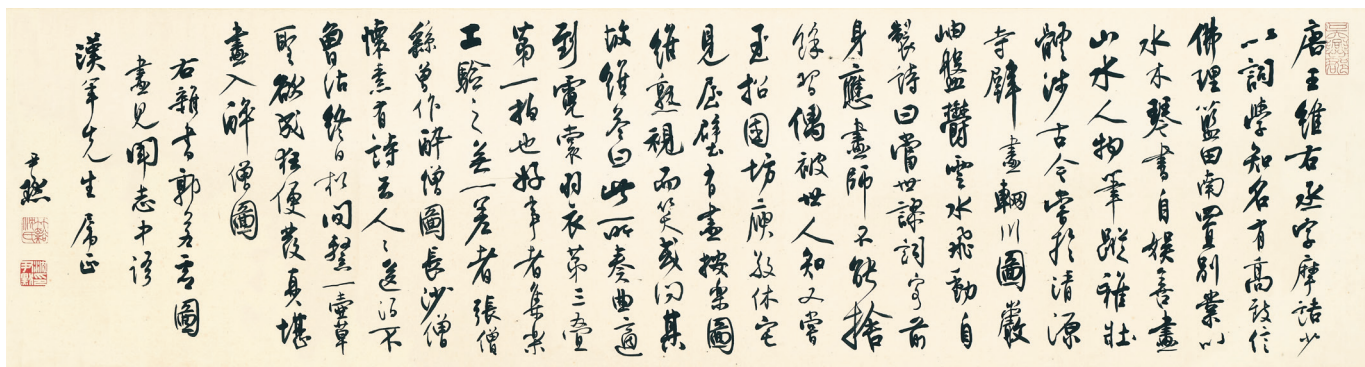 唐王維右丞字摩詰少
以詞學知名有高致信
佛理藍田南置別業以
水木琴書自娛善畫
山水人物筆蹤雅壯
體涉古今嘗於清源
寺壁畫輞川圖巖
岫盤鬱雲水飛動自
製詩曰當世謬詞客前
身應畫師不能捨
餘習偶被世人知又嘗
至招國坊庾敬休宅
見屋壁有畫按樂圖
維熟視而笑或問其
故維答曰此所奏曲適
到霓裳羽衣第三疊
第一拍也好事者集樂
工驗之無一差者張僧
繇曾作醉僧圖長沙僧
懷素有詩云人〻送酒不
曾沽終日松間繫一壺草
聖欲成狂便發真堪
畫入醉僧圖
右雜書郭若虛圖
畫見聞志中語
漢年先生屬正
尹默